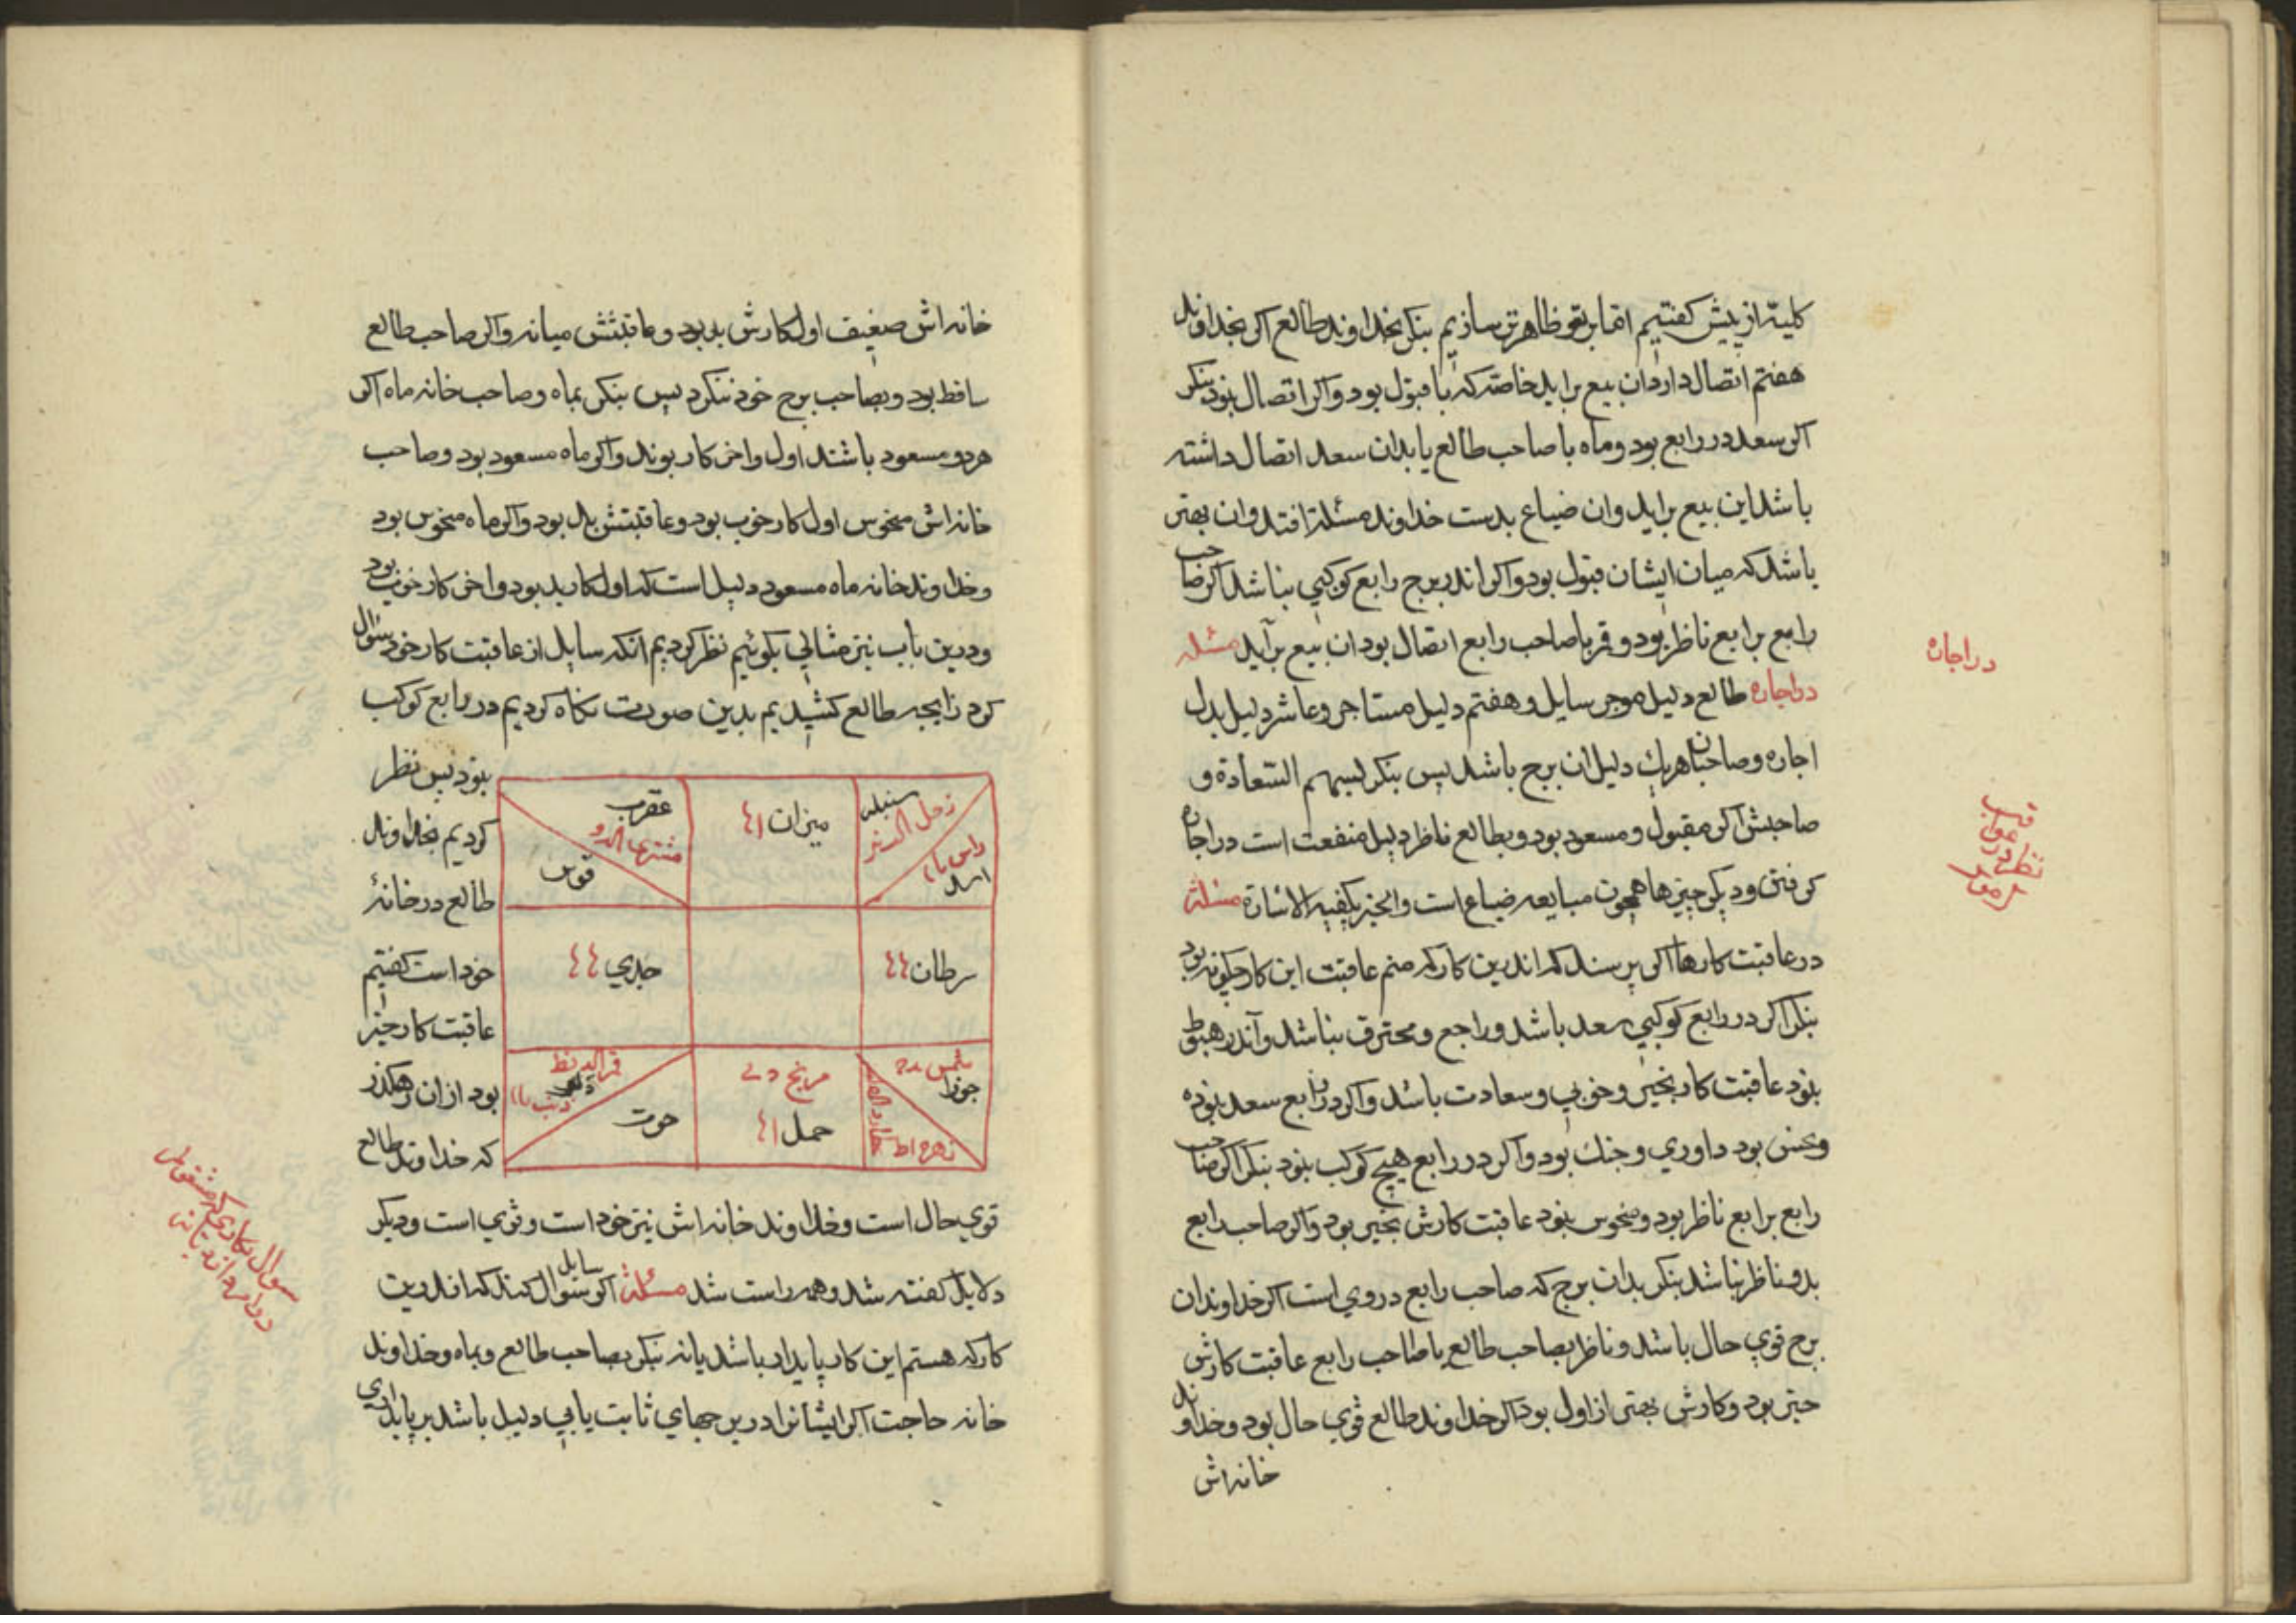 کلیته از پیش کفتیم اما بر تو ظاهرتر سازیم بنکر بخداوند طالع اکر بخداوند
هفتم اتصال دارد آن بیع براید خاصه که با قبول بود واکر اتصال نبود بنکر
اکر سعد در رابع بود وماه با صاحب طالع یا بدان سعد اتصال داشته
باشد این بیع براید وان ضیاع بدست خداوند مسئلة افتد وان بهتر
باشد که میان ایشان قبول بود واکر اندر برج رابع کوکبی نباشد اکر صاحب
رابع برابع ناظر بود وقمر با صاحب رابع اتصال بود ان بیع برآید مسئله
در اجاره طالع دلیل موجر سایل وهفتم دلیل مستاجر وعاشر دلیل بدل
اجاره وصاحبان هریك دلیل ان برج باشد پس بنکر بسهم السعادة و
صاحبش اکر مقبول ومسعود بود وبطالع ناظر دلیل منفعت است در اجاره
کرفتن ودیکر چیزها همچون مبایعه ضیاع است والخبر یکفیه الاشارة مسئلة
در عاقبت کارها اکر پرسند که اندرین کار که منم عاقبت این کار چکونه بود
بنکر اکر در رابع کوکبی سعد باشد وراجع ومحترق نباشد واندر هبوط
نبود عاقبت کار بخیر وخوبی وسعادت باشد واکر در رابع سعد نبوده
ونحس بود داوری وجنك بود واکر در رابع هیچ کوکب نبود بنکر اکر صاحب
رابع برابع ناظر بود ومنحوس نبود عاقبت کارش بخیر بود واکر صاحب رابع
بدو ناظر نباشد بنکر بدان برج که صاحب رابع در وی است اکر خداوند ان
برج قوی حال باشد وناظر بصاحب طالع یا صاحب رابع عاقبت کارش
خیر بود وکارش بهتر از اول بود اکر خداوند طالع قوی حال بود وخداوند
خانه اش
در اجاره
خانه اش ضعیف اول کارش بد بود وعاقبتش میانه واکر صاحب طالع
ساقط بود وبصاحب برج خود ننکرد پس بنکر بماه وصاحب خانه ماه اکر
هردو مسعود باشند اول واخر کار بوند واکر ماه مسعود بود وصاحب
خانه اش منحوس اول کار خوب بود وعاقبتش بد بود واکر ماه منحوس بود
وخداوند خانه ماه مسعود دلیل است که اول کار بد بود واخر کار خوب بود
ودرین باب نیز مثالی بکوئیم نظر کردیم انکه سایل از عاقبت کار خود سؤال
کرد زایجه طالع کشیدیم بدین صورت نکاه کردیم در رابع کوکب
نبود پس نظر
کردیم بخداوند
طالع در خانهٔ
خود است کفتیم
عاقبت کار خیر
بود از ان رهکذر
که خداوند طالع
سنبله
زحل
راس
اسد
میزان ۱۴
عقرب
مشتری
قوس
سرطان ۴۴
جدي ۴۴
شمس
جوزا
زهره اط
عطارد
مریخ
حمل ۱۴
قمر
دلو
ذنب
حوت
قوی حال است وخداوند خانه اش نیز خود است وقوی است ودیکر
دلایل کفته شد وهمه راست شد مسئلة اکر سایل سؤال کند که اندرین
کار که هستم این کار پایدار باشد یا نه بنکر بصاحب طالع وبماه وخداوند
خانه حاجت اکر ایشانرا در برجهای ثابت یابی دلیل باشد بر پایداری